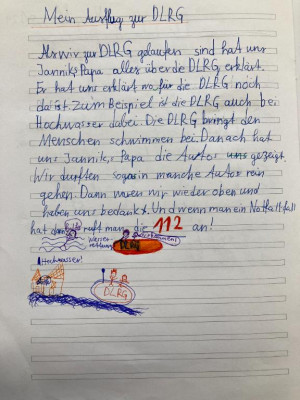 Mein Ausflug zur DLRG
Als wir zur DLRG gelaufen sind hat uns
Jannik's Papa alles über de DLRG erklärt.
Er hat uns erklärt wo für die DLRG noch
da ist. Zum Beispiel ist die DLRG auch bei
Hochwasser dabei. Die DLRG bringt den
Menschen schwimmen bei. Danach hat
uns Jannik,s Papa die Autos uns gezeigt.
Wir durften sogar in manche Autos rein
gehen. Dann waren wir wieder oben und
haben uns bedankt. Und wenn man ein Notfall
hat dann ruft man die 112 an!
Wasser
rettung
DLRG
Hochwasser!
DLRG